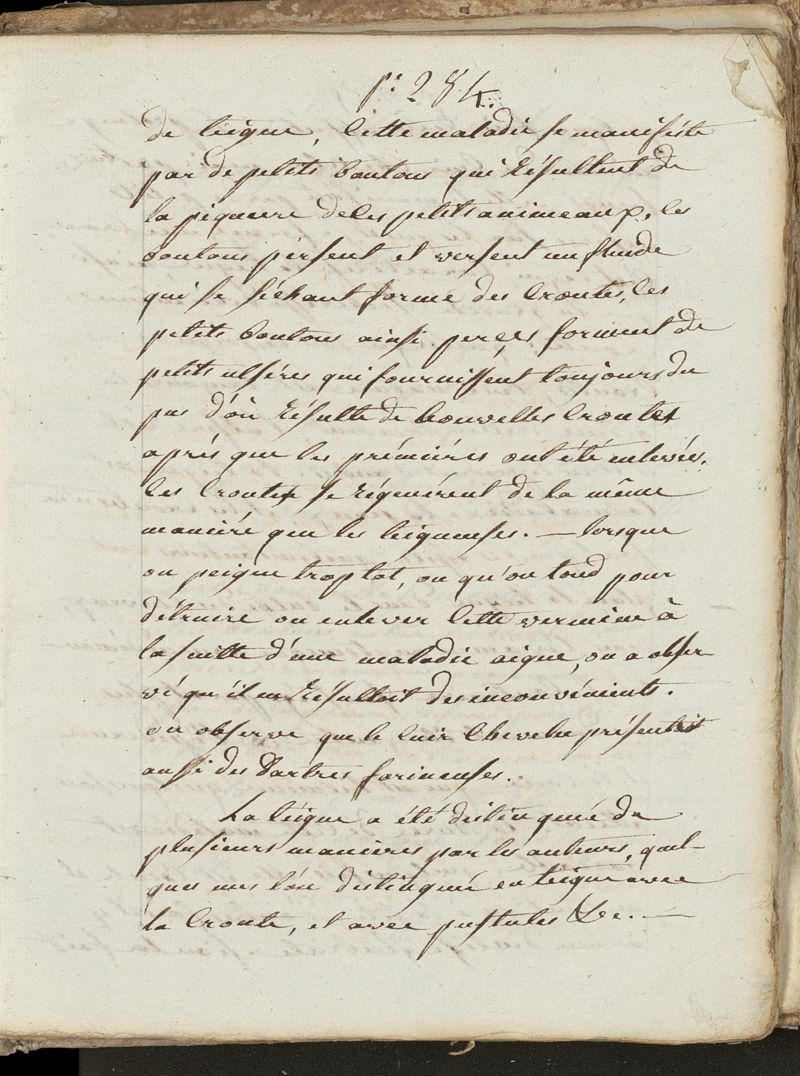 p.e 284.
de teigne, Cette maladie se manifeste
par de petits boutons qui résultent de
la piquure de ces petits animeaux, les
boutons persent et versent un fluide
qui se séchant forme des Croutes, les
petits boutons ainsi percés forment de
petits ulséres qui fournissent toujours du
pus d'où résulte de nouvelles Croutes
aprés que les prémiéres ont été enlevées.
Ces Croutes se régénérent de la même
maniére que les teigneuses. — lorsque
on peigne trop tot, ou qu'on tond pour
détruire ou enlever Cette vermine à
la suitte d'une maladie aigue, on a obser-
vé qu'il en résultoit des inconvénients.
on observe que le Cuir Chevelu présentoit
aussi des Dartres farineuses.
La teigne a été distinguée de
plusieurs manieres par les auteurs, quel-
ques uns l'on distinguée en teigne avec
la Croute, et avec pustules &c. —